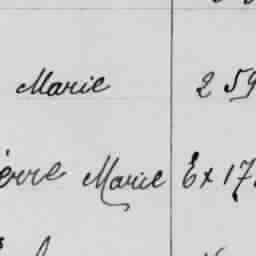 Marie 2 59
ierre Marie Ex 17